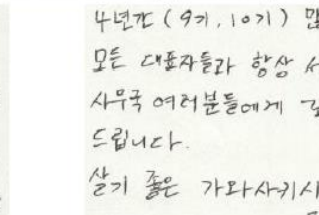 4년간 (9기, 10기)
모든 대표자들과 항상
사무국 여러분들에게
드립니다.
살기 좋은 가와사키시